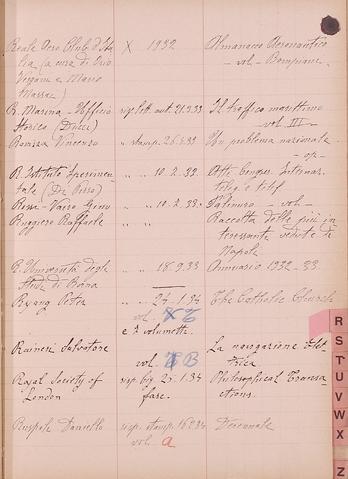 Reale Aero Club d'Ita- X 1932 Almanacco Aeronautico
lia (a cura di
Vergani e Mario – vol – Bompiani.
Massai)
R. Marina – Ufficio risp. lett. aut. 21.9.33 Il traffico marittimo
Storico (Ducci) – vol III –
Romizza Vincenzo " stamp. 26.5.33 Un problema nazionale
– op –
R. Istituto Sperimen- " " 10.2.33 Atti Congr. Internaz.
tale (De Pirro) telegr. e telef.
Rossi Vairo Genu " " 10.2.33 Palinuro – vol –
Ruggiero Raffaele " " " Raccolta delle più in
teressanti vedute di
Napoli
R. Università degli " " 18.9.33 Annuario 1932-33.
Studi di Roma
Ryang Peter " " 24.1.34 The Catholic Church
vol.
e 2 volumetti
Raineri Salvatore La navigazione elet-
vol. B trica
Royal Society of risp. big. 25.1.34 Philosophical Transa
London fasc. ctions.
Ruspoli Daniello risp. stamp. 16.2.34 Decennale
vol. a
R
S
T
U
V
W
X
Z